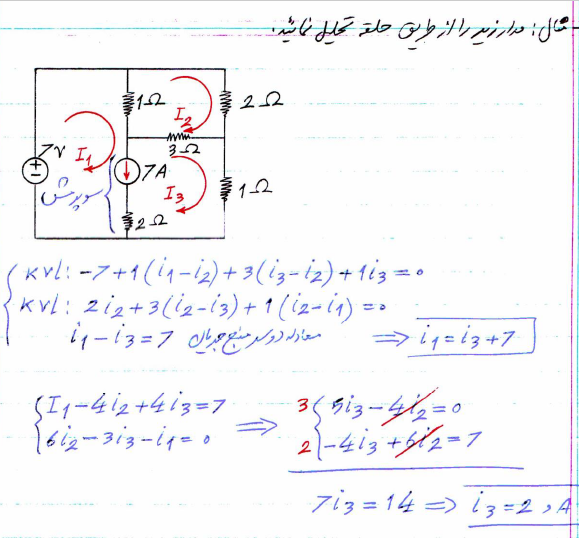 مثال: مدار زیر را از طریق حلقه تحلیل نمائید.
1Ω
2Ω
I2
3Ω
7V
I1
7A
I3
1Ω
سوپرمش
2Ω
KVL: -7+1(i1-i2)+3(i3-i2)+1i3=0
KVL: 2i2+3(i2-i3)+1(i2-i1)=0
i1-i3=7 معادله دو سر منبع جریان ⇒ i1=i3+7
I1-4i2+4i3=7 ⇒ 3 5i3-4i2=0
6i2-3i3-i1=0 2 -4i3+6i2=7
7i3=14 ⇒ i3=2, A